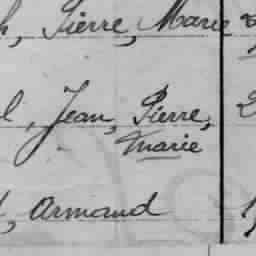 h, Pierre, Marie
l, Jean, Pierre, 2
Marie
, Armand